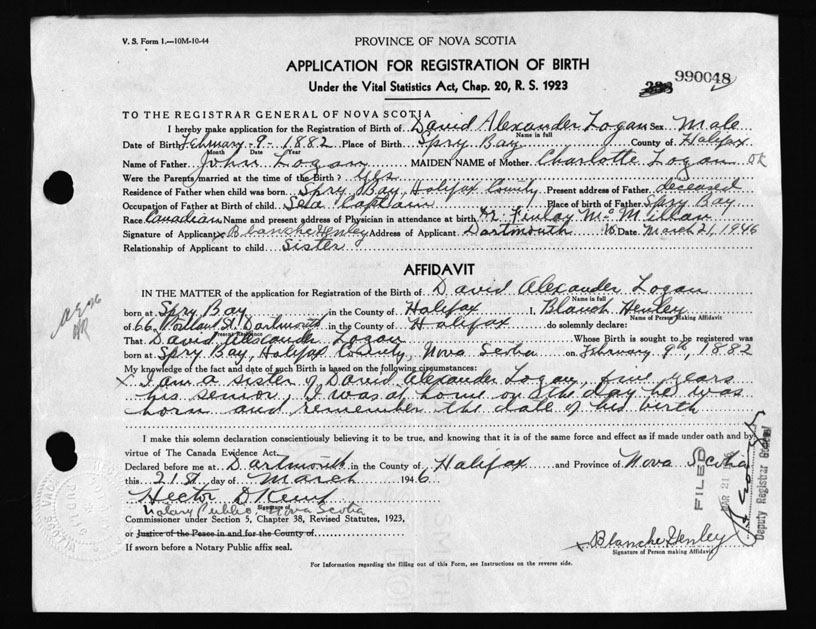 V. S. Form 1.—10M-10-44
PROVINCE OF NOVA SCOTIA
APPLICATION FOR REGISTRATION OF BIRTH
Under the Vital Statistics Act, Chap. 20, R. S. 1923
990048
TO THE REGISTRAR GENERAL OF NOVA SCOTIA
I hereby make application for the Registration of Birth of David Alexander Logan Sex Male
Name in full
Date of Birth February -9- 1882 Place of Birth Spry Bay County of Halifax
Month Date Year
Name of Father John Logan MAIDEN NAME of Mother Charlotte Logan OK
Were the Parents married at the time of the Birth? Yes
Residence of Father when child was born Spry Bay, Halifax County Present address of Father deceased
Occupation of Father at Birth of child Sea Captain Place of birth of Father Spry Bay
Race Canadian Name and present address of Physician in attendance at birth Dr. Finlay McMillan
Signature of Applicant x Blanche Henley Address of Applicant Dartmouth Date March 21, 1946
Relationship of Applicant to child Sister
AFFIDAVIT
IN THE MATTER of the application for Registration of the Birth of David Alexander Logan
Name in full
born at Spry Bay in the County of Halifax I, Blanch Henley
Name of Person Making Affidavit
of 66 Portland St. Dartmouth in the County of Halifax do solemnly declare:
Present Residence
That David Alexander Logan Whose Birth is sought to be registered was
born at Spry Bay, Halifax County, Nova Scotia on February 9th, 1882
My knowledge of the fact and date of such Birth is based on the following circumstances:
x I am a sister of David Alexander Logan, five years
his senior, I was at home on the day he was
born and remember the date of his birth
I make this solemn declaration conscientiously believing it to be true, and knowing that it is of the same force and effect as if made under oath and by
virtue of The Canada Evidence Act.
Declared before me at Dartmouth in the County of Halifax and Province of Nova Scotia
this 21st day of March 1946
Hector D Kemp
Signature of
Notary Public, Nova Scotia
Commissioner under Section 5, Chapter 38, Revised Statutes, 1923,
or Justice of the Peace in and for the County of
If sworn before a Notary Public affix seal.
x Blanche Henley
Signature of Person making Affidavit
For Information regarding the filling out of this Form, see Instructions on the reverse side.
FILED
MAR 21
Deputy Registrar General